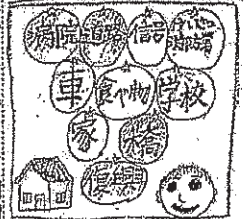 病院 道路 信号
車 食べ物 学校
家 橋
復興